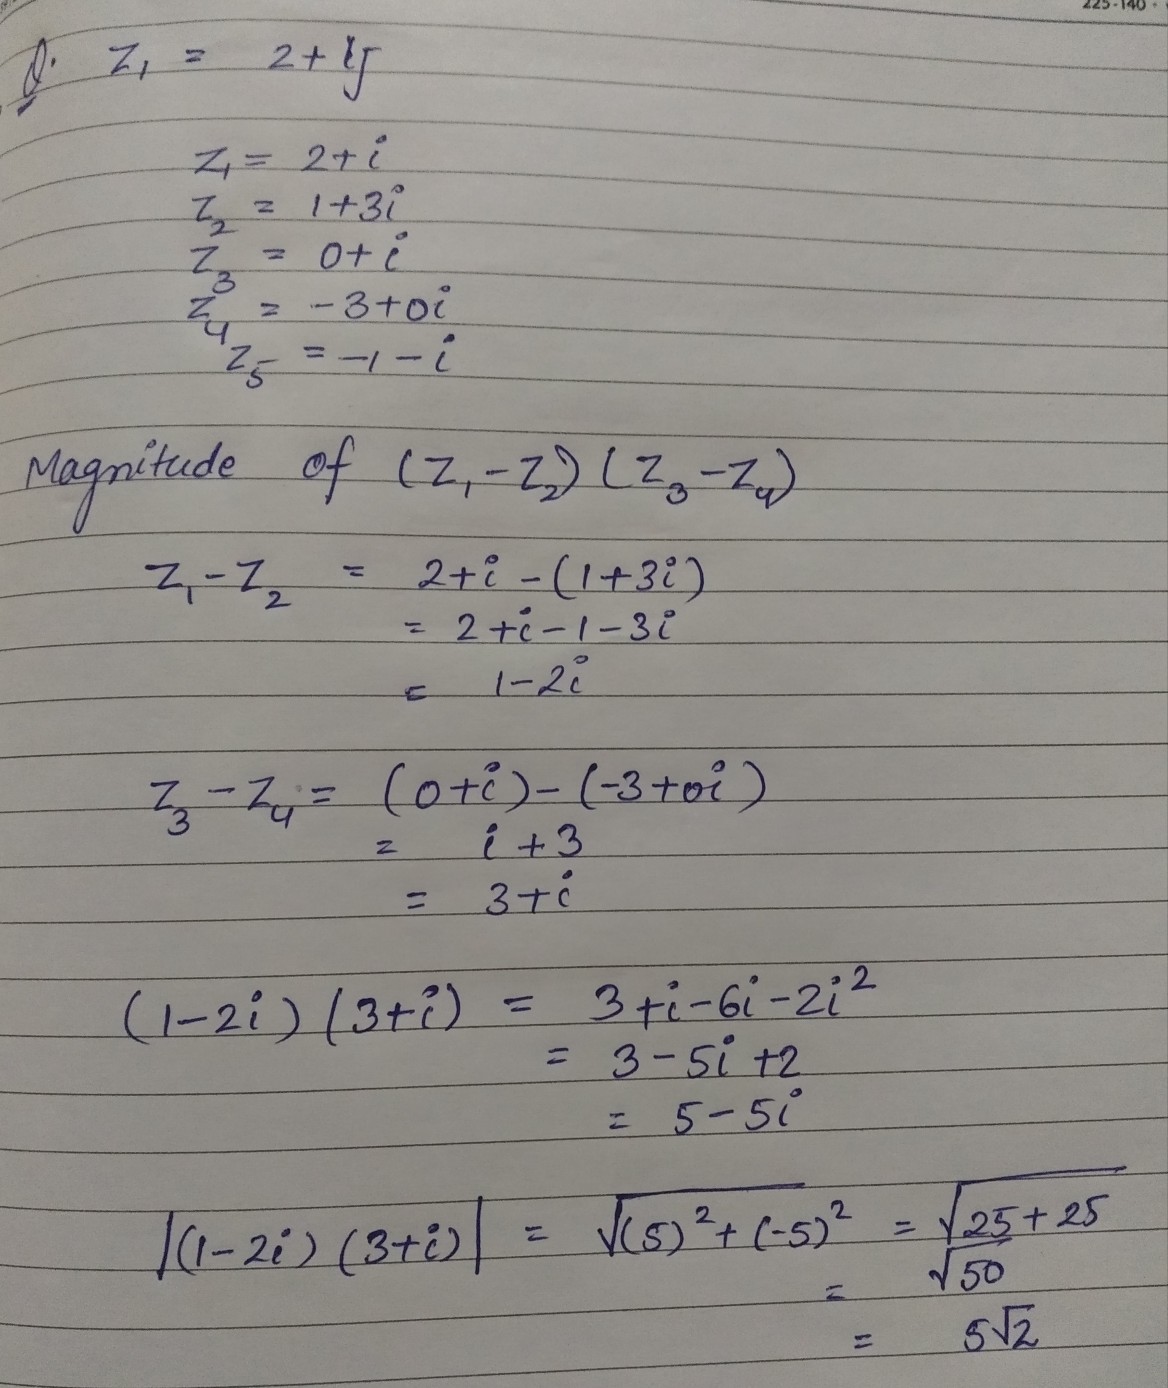 225-140
Q. Z₁ = 2+ij
Z₁ = 2+i
Z₂ = 1+3i
Z₃ = 0+i
Z₄ = -3+0i
Z₅ = -1-i
Magnitude of (Z₁-Z₂)(Z₃-Z₄)
Z₁-Z₂ = 2+i-(1+3i)
= 2+i-1-3i
= 1-2i
Z₃-Z₄ = (0+i)-(-3+0i)
= i+3
= 3+i
(1-2i)(3+i) = 3+i-6i-2i²
= 3-5i+2
= 5-5i
|(1-2i)(3+i)| = √(5)²+(-5)² = √25+25
= √50
= 5√2